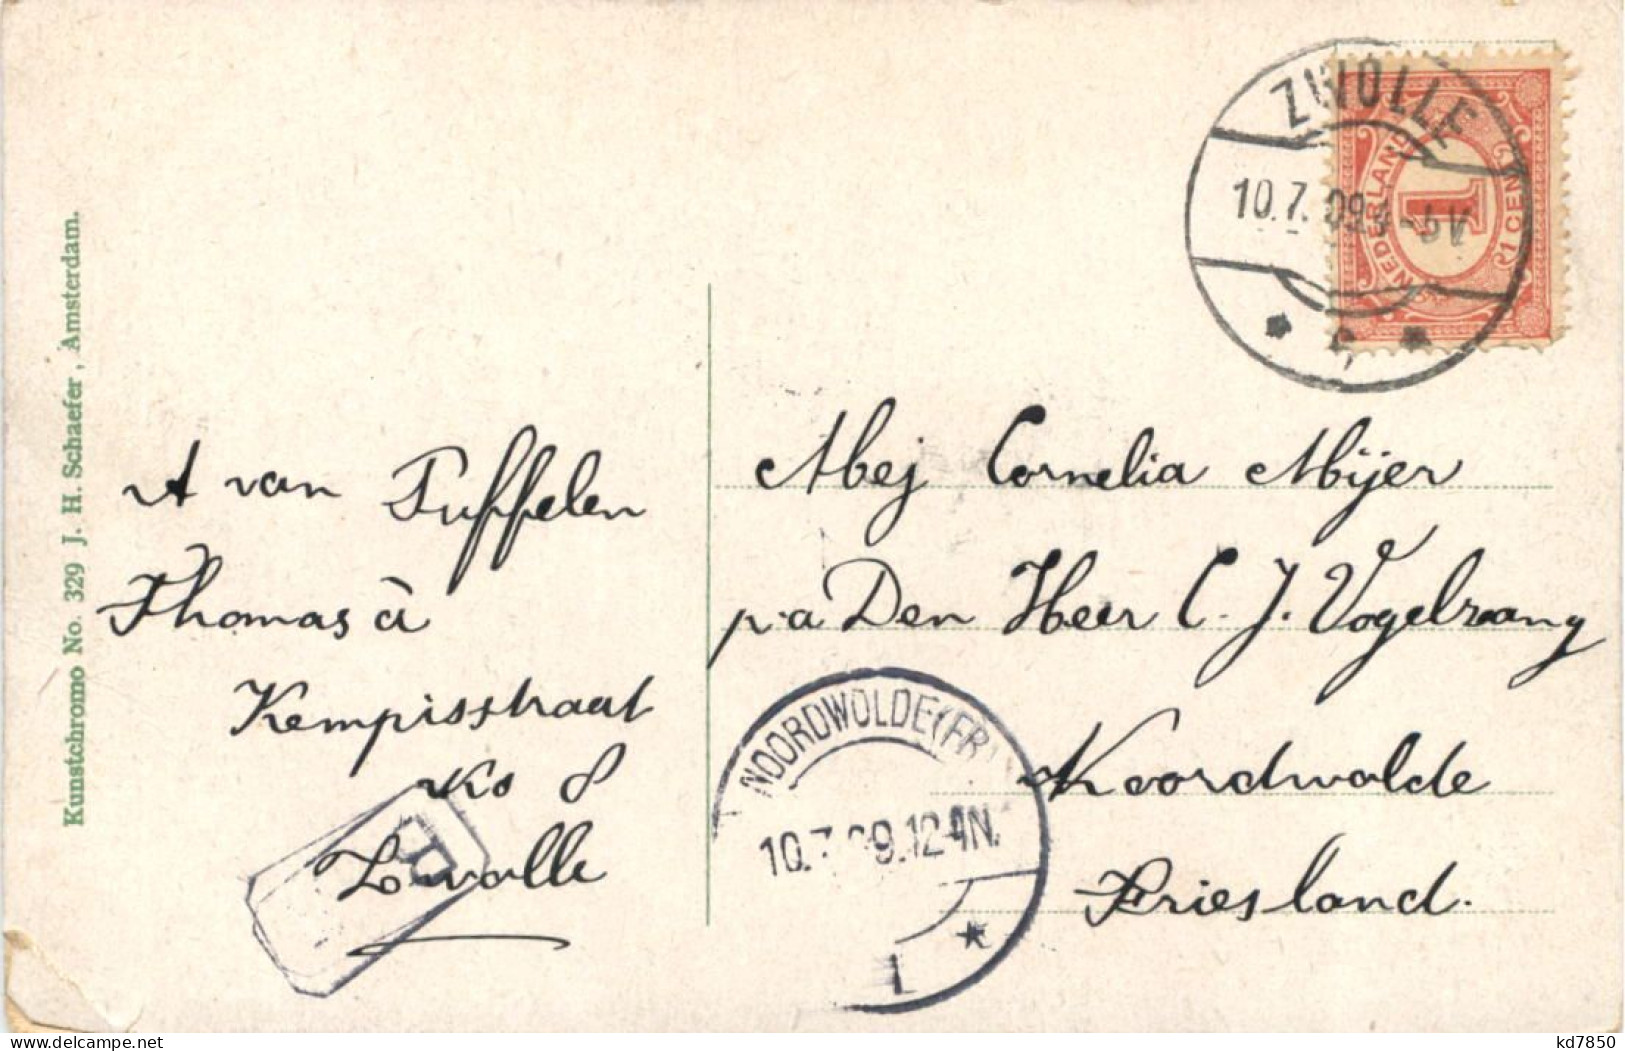 Kunstchromo No. 329 J. H. Schaefer, Amsterdam.
A van Tuffelen
Thomas à
Kempisstraat
No 8
Zwolle
ZWOLLE
10.7.09
NEDERLAND
1
1 CENT
Mej Cornelia Mijer
p.a Den Heer C. J. Vogelzang
Noordwolde
Friesland.
NOORDWOLDE (FR)
10.7.09.12-4N.
1
kd7850